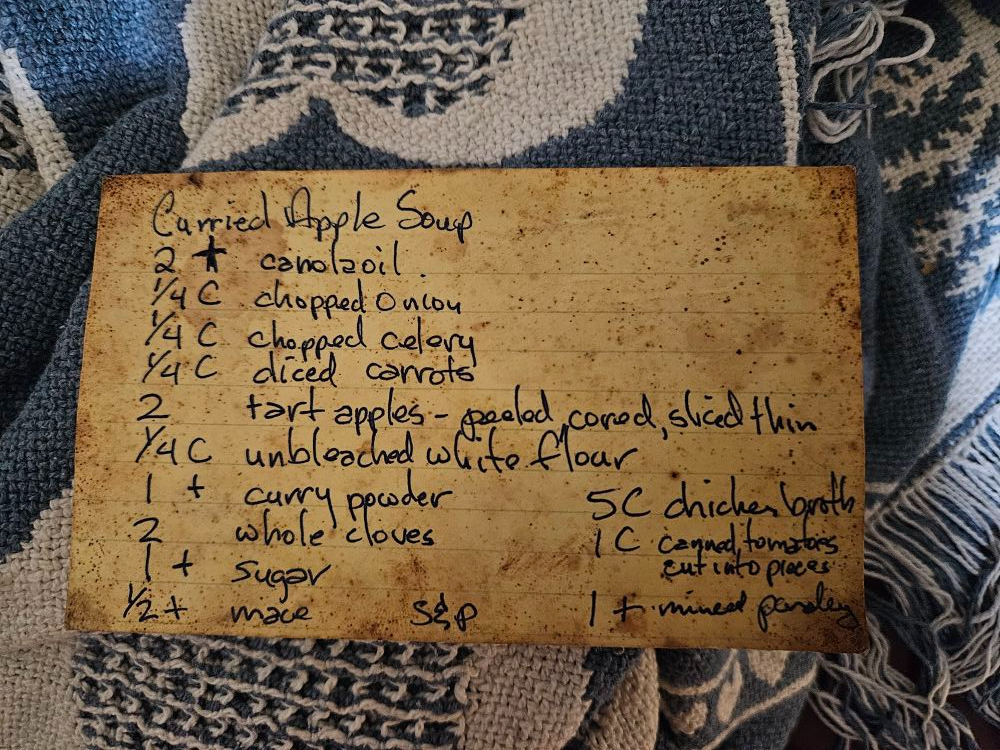 Curried Apple Soup
2 T canola oil.
1/4 C chopped onion
1/4 C chopped celery
1/4 C diced carrots
2 tart apples - peeled, cored, sliced thin
1/4 C unbleached white flour
1 t curry powder
2 whole cloves
1 t sugar
1/2 t mace S&P
5C chicken broth
1 C canned tomatoes
cut into pieces
1 t minced parsley